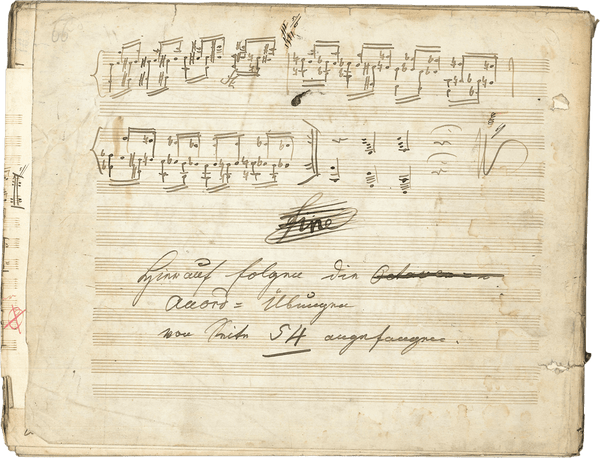 66
Fine
Hierauf folgen die Octaven
Accord= Übungen
von Seite 54 angefangen.